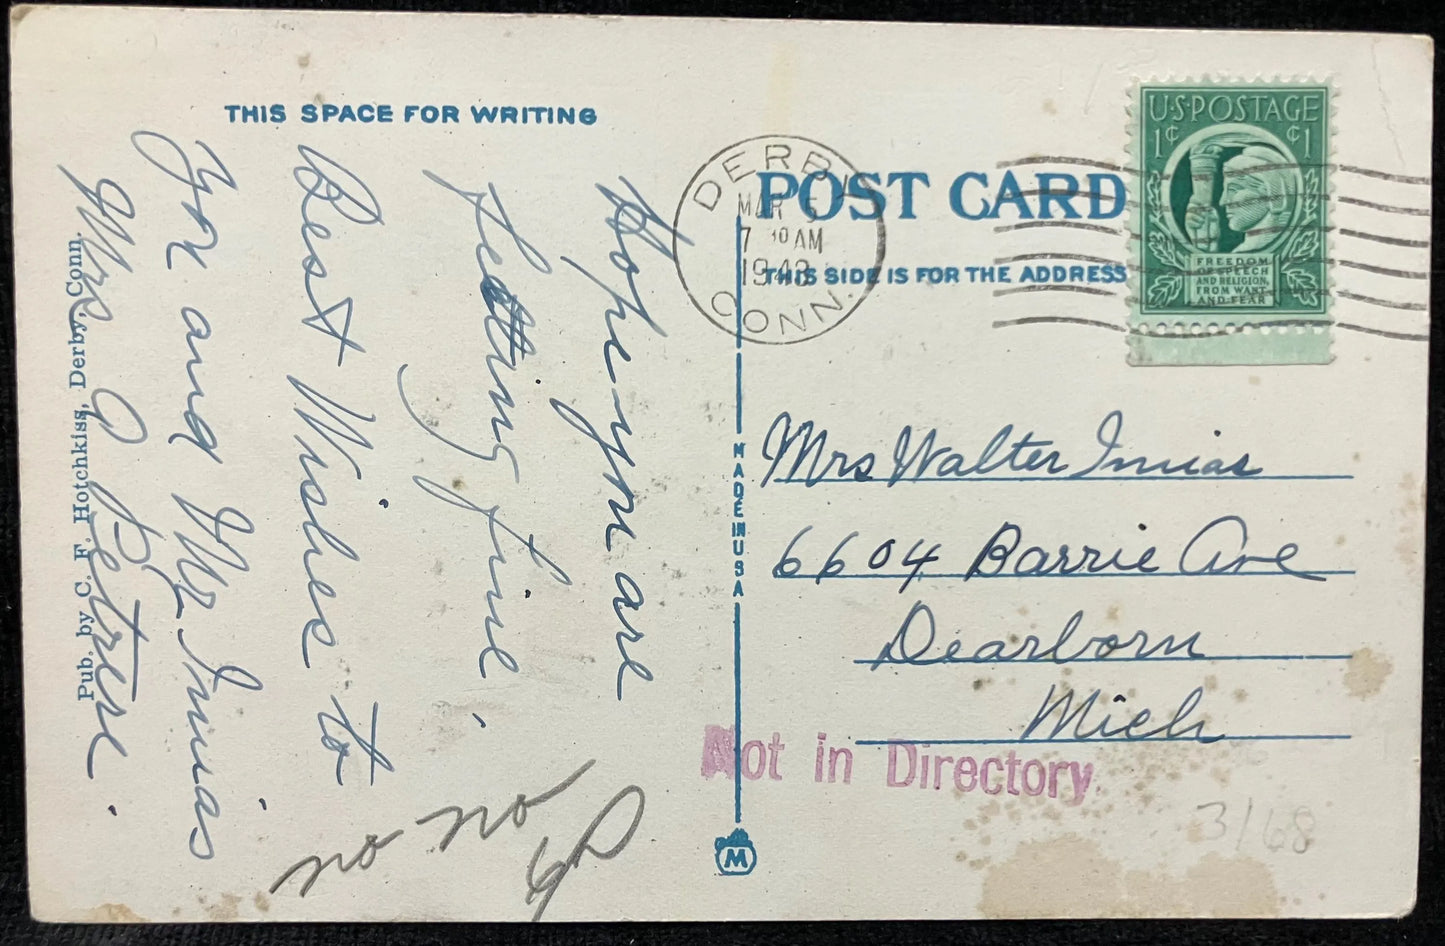 THIS SPACE FOR WRITING
Hope you are
feeling fine,
Best Wishes to
You and Mr. Innias
Mrs
Pub. by C. F. Hotchkiss, Derby, Conn.
DERBY
MAR 5
7 30 AM
1943
CONN.
POST CARD
THIS SIDE IS FOR THE ADDRESS
U·S·POSTAGE
1¢ ¢1
FREEDOM
OF SPEECH
AND RELIGION,
FROM WANT
AND FEAR
MADE IN USA
Mrs Walter Innias
6604 Barrie Ave
Dearborn
Mich
Not in Directory
no
on
M
3/68